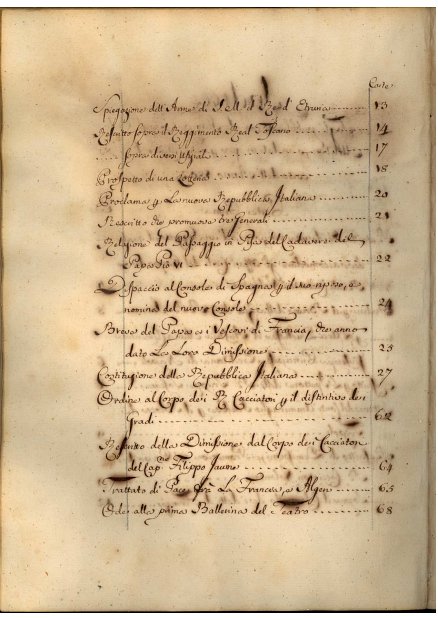 Carte
Spiegazione dell'Arme di S. M. il Re d'Etruria 13
Rescritto sopra il Reggimento Real Toscano 14
sopra diversi 17
Prospetto di una 18
Proclama p. la nuova Repubblica Italiana 20
Rescritto che promuove tre Generali 21
Relazione del Passaggio in Pisa del Cadavere del
Papa Pio VI 22
Dispaccio al Console di Spagna p. il suo riposo, e
nomina del nuovo Console 24
Breve del Papa a i Vescovi di Francia, che anno
dato La Loro Dimissione 25
Costituzione della Repubblica Italiana 27
Ordine al Corpo dei R. Cacciatori p. il distintivo dei
Gradi 62
Rescritto della Dimissione dal Corpo dei Cacciatori
del Cap.no Filippo 64
Trattato di Pace frà La Francia, e Algeri 65
Ode alla prima Ballerina del Teatro 68